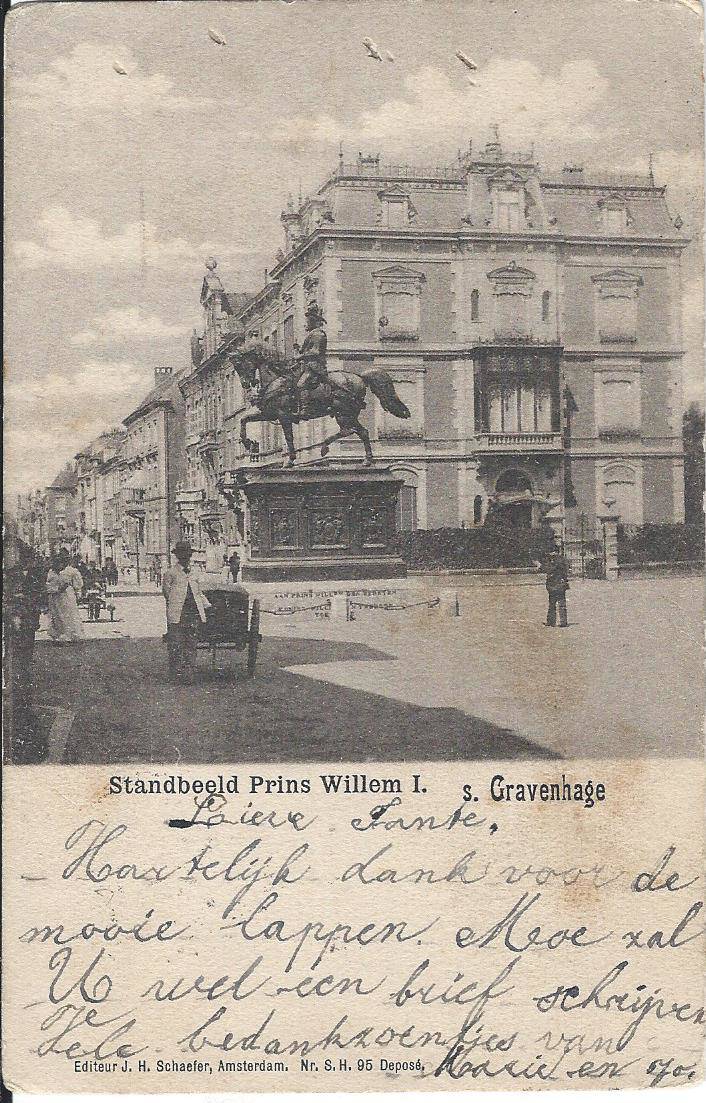 Standbeeld Prins Willem I. s. Gravenhage
Lieve Tante,
Hartelijk dank voor de
mooie lappen. Moe zal
U wel een brief schrijven
Vele bedankzoentjes van
Marie en Jo.
Editeur J. H. Schaefer, Amsterdam. Nr. S. H. 95 Deposé.